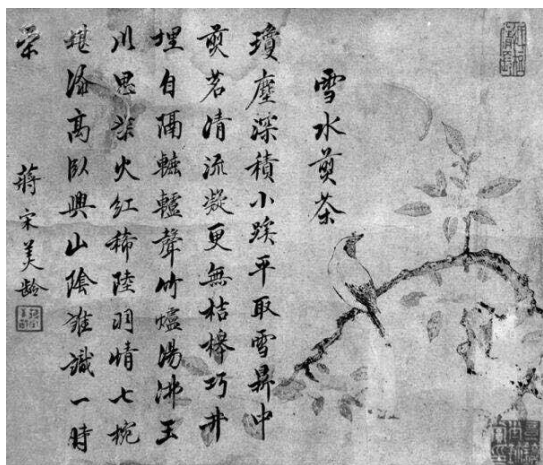 雪水煎茶
瓊塵深積小蹊平取雪鼎中
煎茗清流凝更無桔槔巧井
埋自隔轆轤聲竹爐湯沸玉
川思炭火紅稀陸羽情七椀
堪添高臥興山陰誰識一時
榮
蔣宋美齡